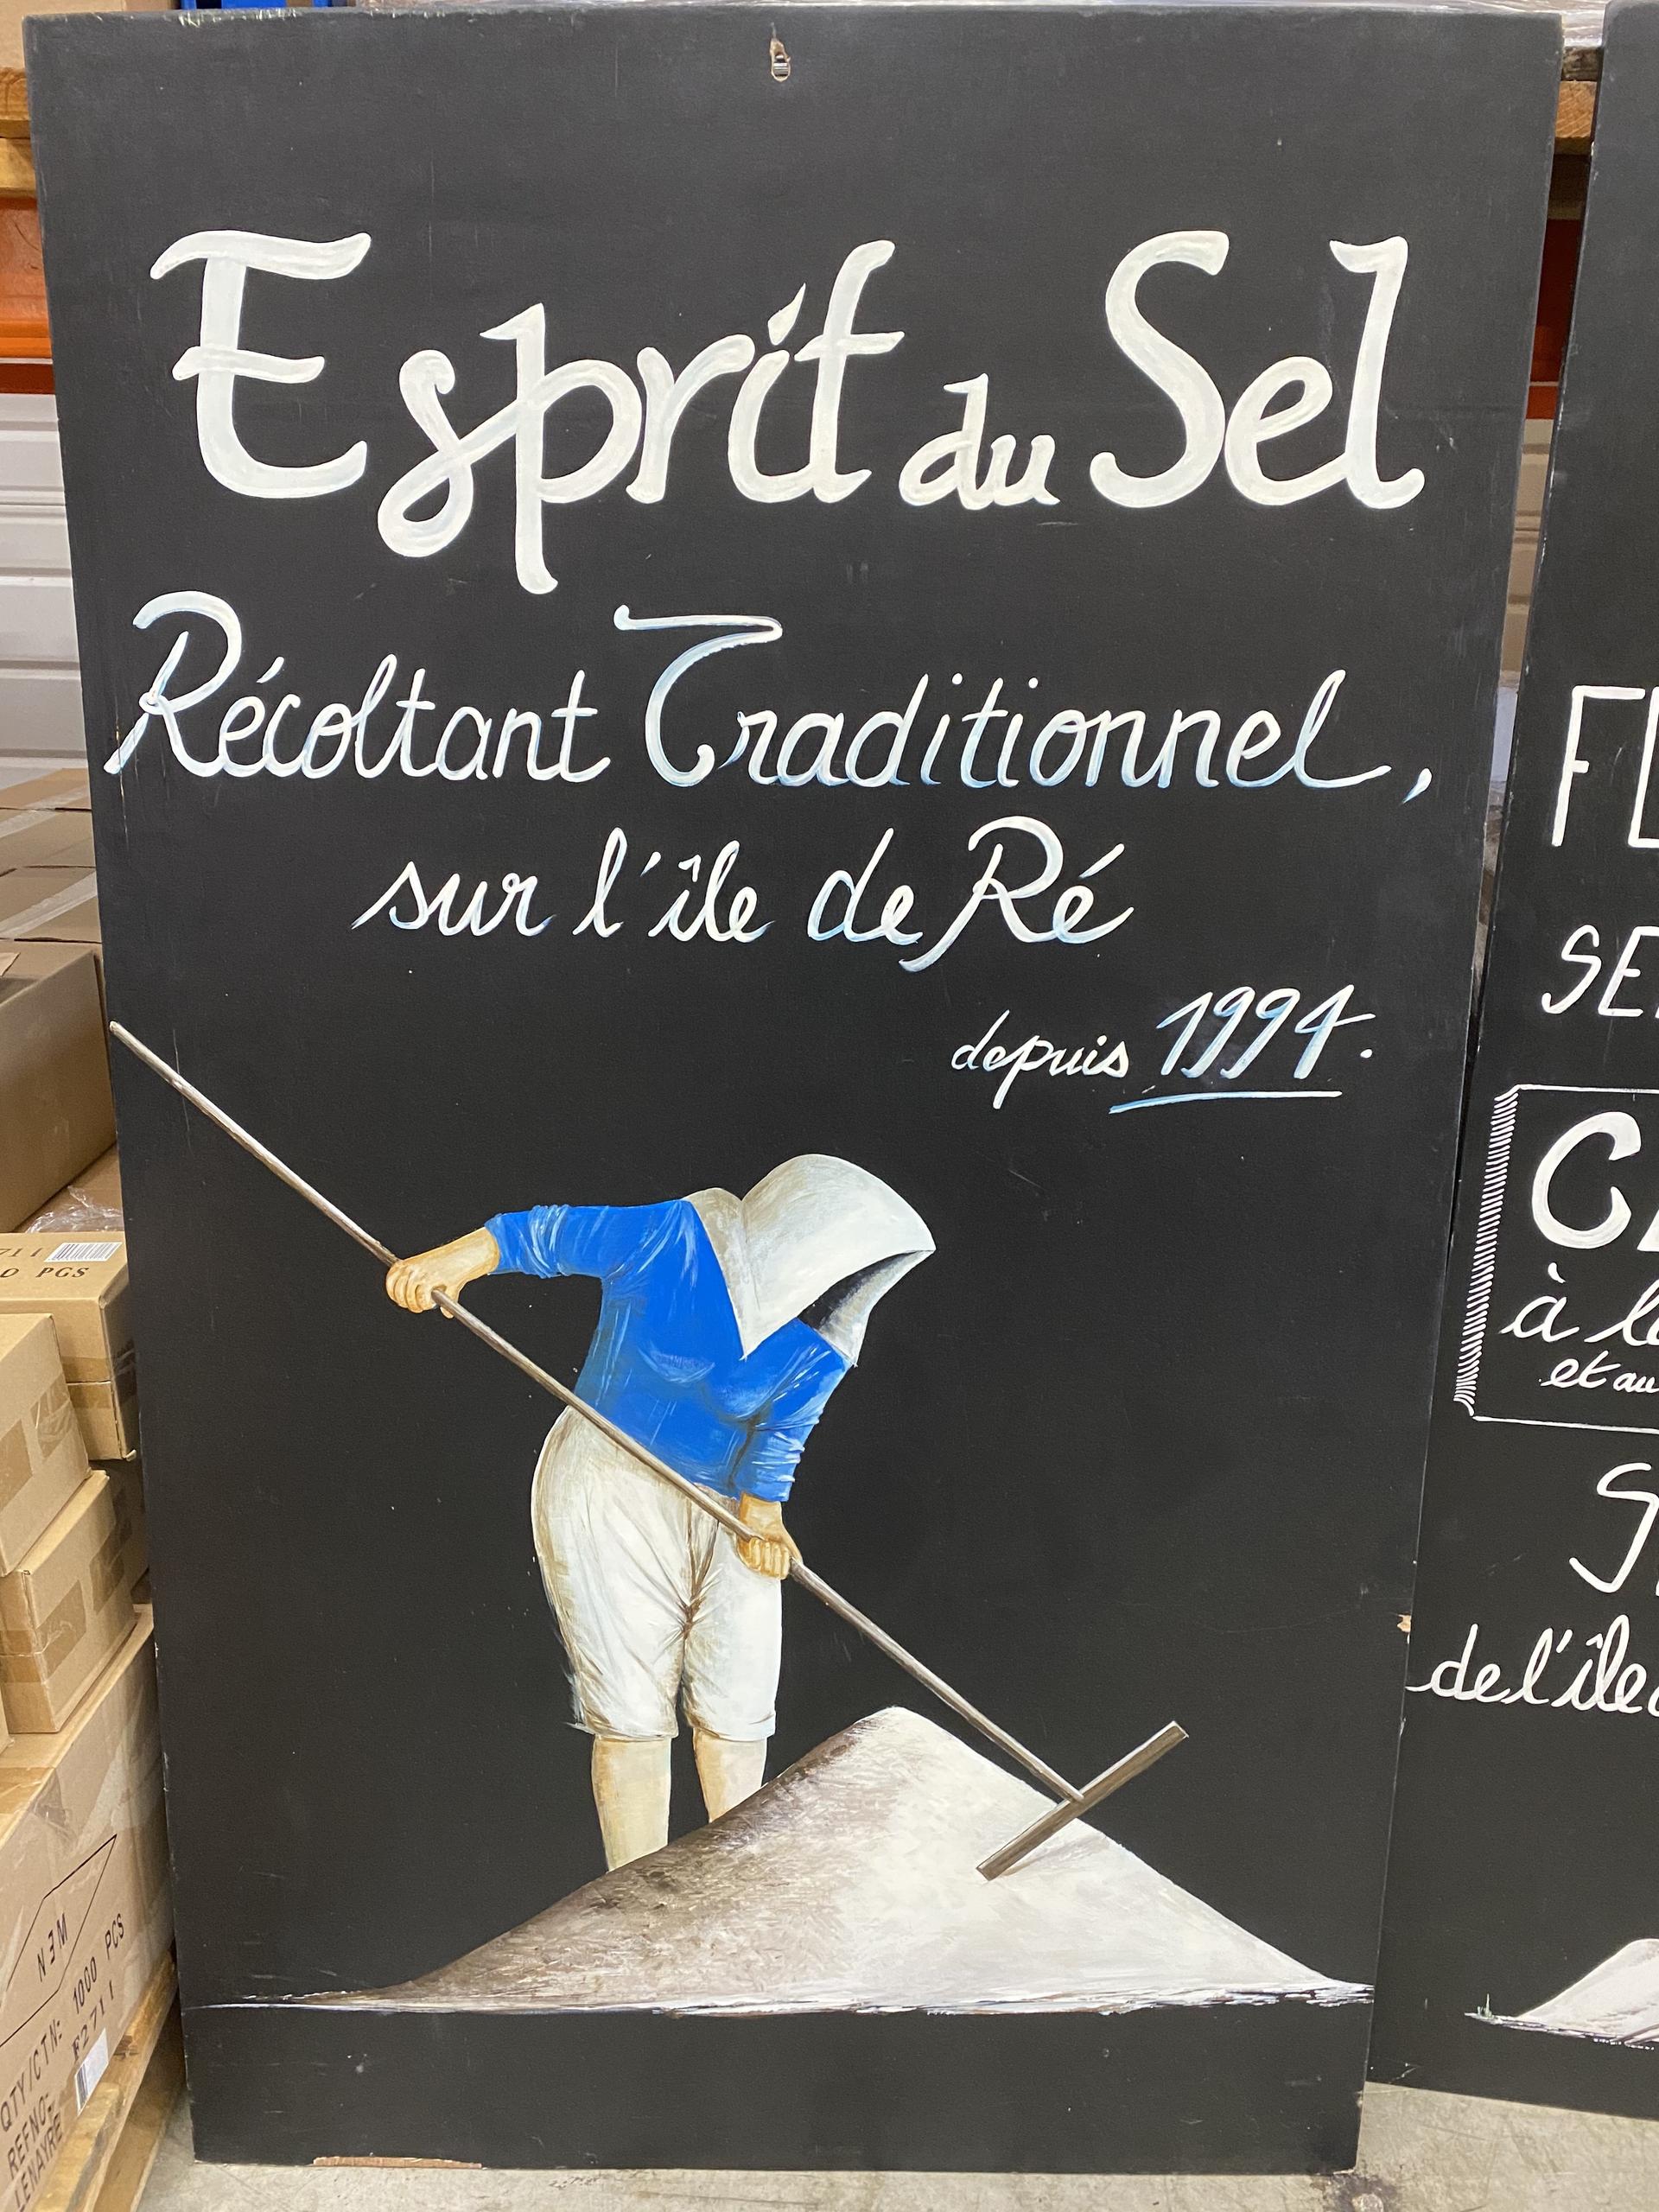 Esprit du Sel
Récoltant Traditionnel,
sur l'île de Ré
depuis 1994.
à
et au
de l'île
PGS
N3M
QTY/CTN: 1000 PCS
REFNO: F2711
LENAYRE